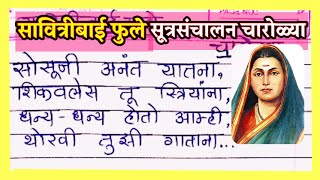 सावित्रीबाई फुले सूत्रसंचालन चारोळ्या
सोसूनी अनंत यातना,
शिकवलेस तू स्त्रियांना,
धन्य-धन्य होतो आम्ही,
थोरवी तुझी गाताना..